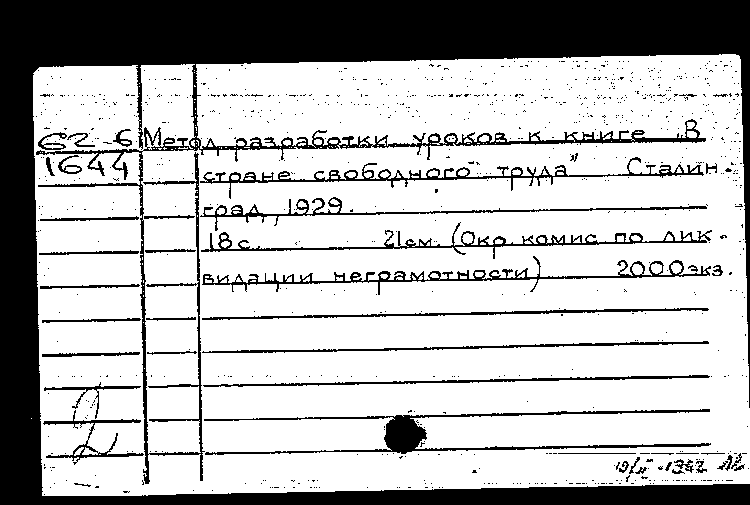 62-6
1644
Метод разработки уроков к книге „В
стране свободного труда" Сталин-
град, 1929.
18 с. 21 см. (Окр. комис по лик-
видации неграмотности) 2000 экз.
2